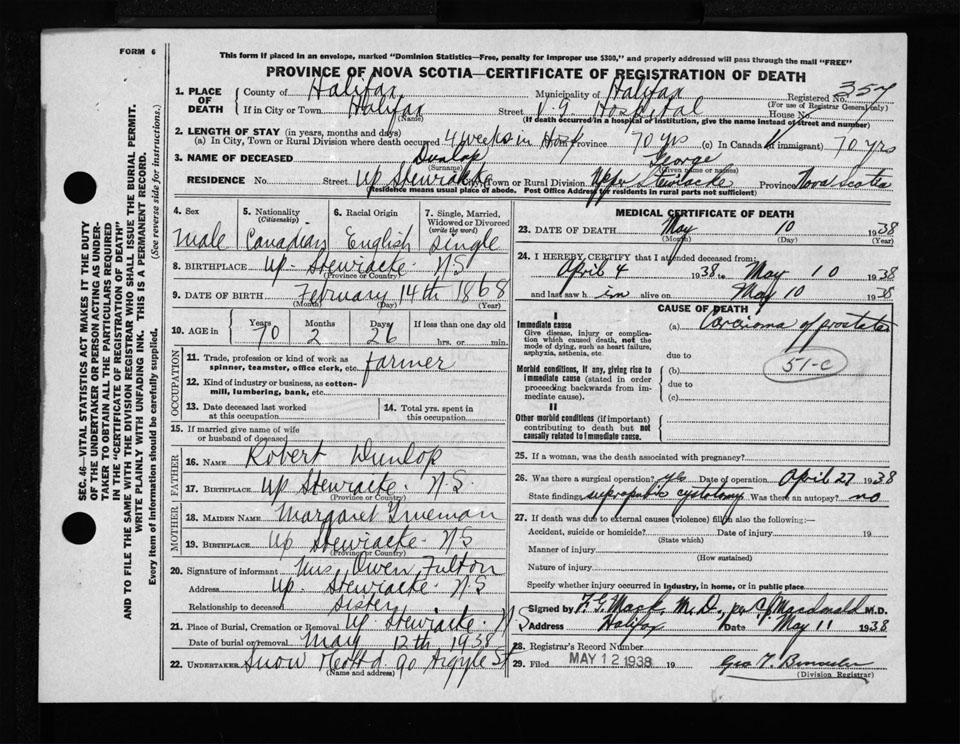 FORM 6
This form if placed in an envelope, marked "Dominion Statistics—Free, penalty for improper use $300," and properly addressed will pass through the mail "FREE"
PROVINCE OF NOVA SCOTIA—CERTIFICATE OF REGISTRATION OF DEATH
SEC. 46—VITAL STATISTICS ACT MAKES IT THE DUTY
OF THE UNDERTAKER OR PERSON ACTING AS UNDER-
TAKER TO OBTAIN ALL THE PARTICULARS REQUIRED
IN THE "CERTIFICATE OF REGISTRATION OF DEATH"
AND TO FILE THE SAME WITH THE DIVISION REGISTRAR WHO SHALL ISSUE THE BURIAL PERMIT.
WRITE PLAINLY WITH UNFADING INK. THIS IS A PERMANENT RECORD.
Every item of Information should be carefully supplied. (See reverse side for instructions.)
1. PLACE OF DEATH County of Halifax Municipality of Halifax Registered No. 357
(For use of Registrar General only)
If in City or Town Halifax (Name) Street V. G. Hospital House No.
(If death occurred in a hospital or institution, give the name instead of street and number)
2. LENGTH OF STAY (in years, months and days)
(a) In City, Town or Rural Division where death occurred 4 weeks in Hosp Province 70 yrs (c) In Canada (if immigrant) 70 yrs
3. NAME OF DECEASED Dunlop (Surname) George (Given name or names)
RESIDENCE No. Street Up Stewiacke City, Town or Rural Division Upper Stewiacke Province Nova Scotia
(Residence means usual place of abode. Post Office Address for residents in rural parts not sufficient)
4. Sex Male
5. Nationality (Citizenship) Canadian
6. Racial Origin English
7. Single, Married, Widowed or Divorced (write the word) Single
8. BIRTHPLACE Up. Stewiacke. N.S (Province or Country)
9. DATE OF BIRTH February 14th 1868 (Month) (Day) (Year)
10. AGE in Years 70 Months 2 Days 26 If less than one day old hrs. or min.
OCCUPATION
11. Trade, profession or kind of work as spinner, teamster, office clerk, etc. farmer
12. Kind of industry or business, as cotton-mill, lumbering, bank, etc.
13. Date deceased last worked at this occupation
14. Total yrs. spent in this occupation
15. If married give name of wife or husband of deceased
FATHER
16. NAME Robert Dunlop
17. BIRTHPLACE Up Stewiacke. N.S. (Province or Country)
MOTHER
18. MAIDEN NAME Margaret Trueman
19. BIRTHPLACE Up Stewiacke. N.S (Province or Country)
20. Signature of informant Mrs Owen Fulton
Address Up. Stewiacke. N.S
Relationship to deceased Sister
21. Place of Burial, Cremation or Removal Up Stewiacke. N.S
Date of burial or removal May 12th 1938
22. UNDERTAKER Snow 90 Argyle St
(Name and address)
MEDICAL CERTIFICATE OF DEATH
23. DATE OF DEATH May 10 1938
(Month) (Day) (Year)
24. I HEREBY CERTIFY that I attended deceased from:
April 4 1938 to May 10 1938
and last saw him alive on May 10 1938
CAUSE OF DEATH
I
Immediate cause
Give disease, injury or complication which caused death, not the mode of dying, such as heart failure, asphyxia, asthenia, etc.
(a) Carcinoma of prostate
due to
Morbid conditions, if any, giving rise to immediate cause (stated in order proceeding backwards from immediate cause).
(b) 51-c
due to
(c)
II
Other morbid conditions (if important) contributing to death but not causally related to immediate cause.
25. If a woman, was the death associated with pregnancy?
26. Was there a surgical operation? yes Date of operation April 27 1938
State findings suprapubic cystotomy Was there an autopsy? no
27. If death was due to external causes (violence) fill in also the following:—
Accident, suicide or homicide? Date of injury 19
(State which)
Manner of injury
(How sustained)
Nature of injury
Specify whether injury occurred in industry, in home, or in public place
Signed by F. G. Mack M.D. per C. J. Macdonald M.D.
Address Halifax Date May 11 1938
28. Registrar's Record Number
29. Filed MAY 12 1938 19
(Division Registrar)